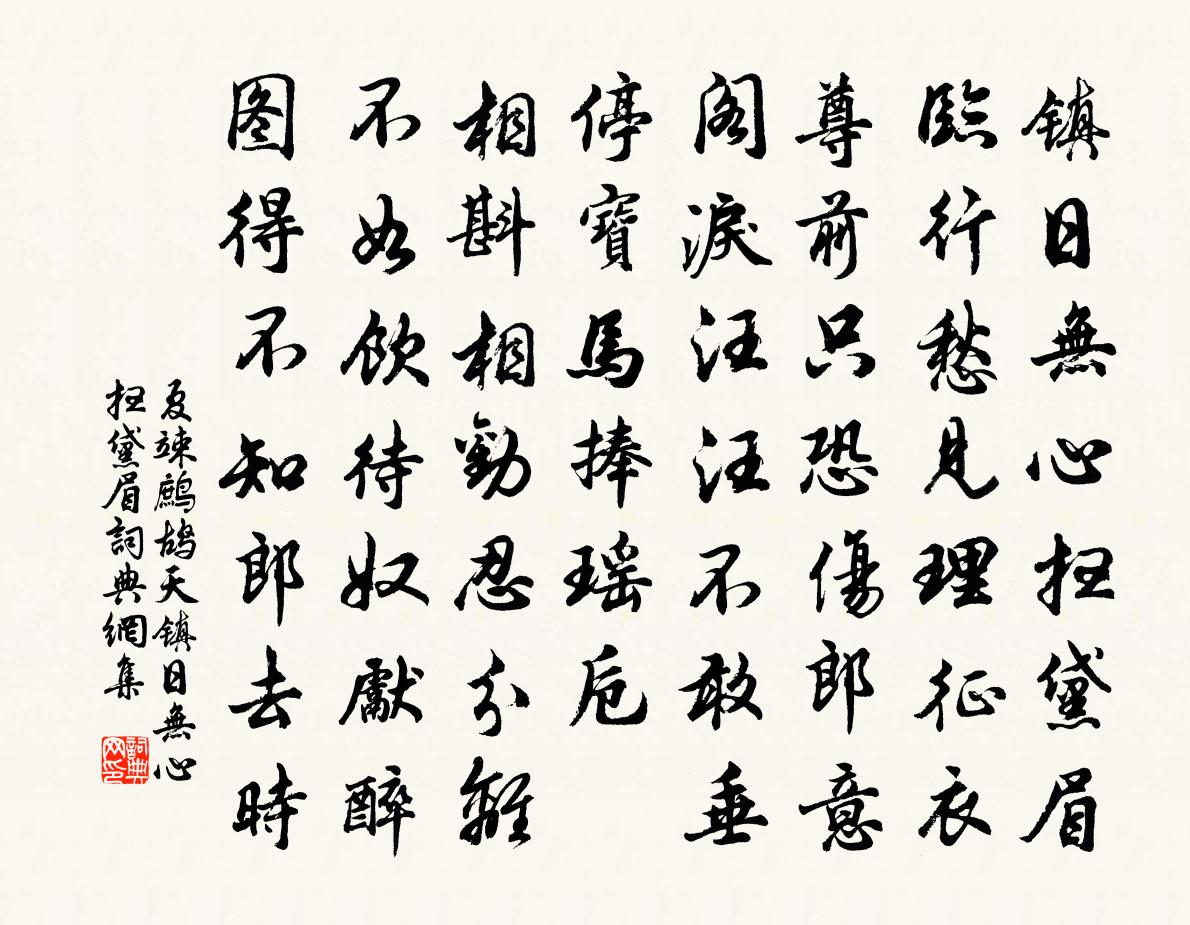 鎮日無心扫黛眉
臨行愁見理征衣
尊前只恐傷郎意
阁淚汪汪不敢垂
停寶馬捧瑶卮
相斟相勸忍分離
不如飲待奴獻醉
图得不知郎去時
夏竦鷓鴣天鎮日無心
扫黛眉詞典網集
詞典
网印